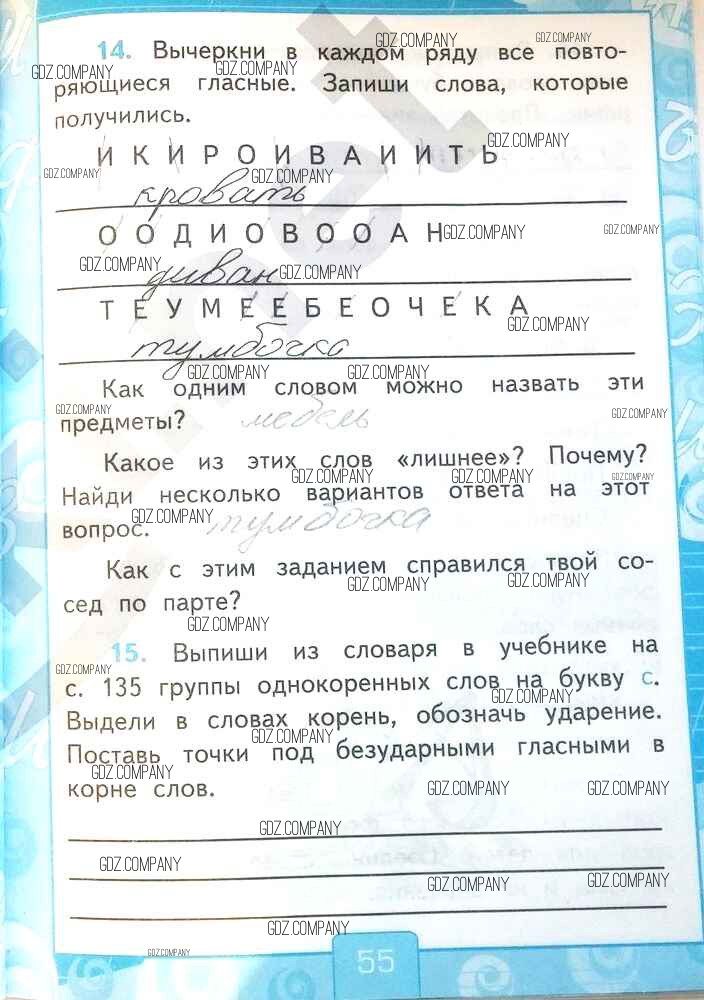 14. Вычеркни в каждом ряду все повто-
ряющиеся гласные. Запиши слова, которые
получились.
И К И Р О И В А И И Т Ь
кровать
О О Д И О В О О А Н
диван
Т Е У М Е Е Б Е О Ч Е К А
тумбочка
Как одним словом можно назвать эти
предметы? мебель
Какое из этих слов «лишнее»? Почему?
Найди несколько вариантов ответа на этот
вопрос. тумбочка
Как с этим заданием справился твой со-
сед по парте?
15. Выпиши из словаря в учебнике на
с. 135 группы однокоренных слов на букву с.
Выдели в словах корень, обозначь ударение.
Поставь точки под безударными гласными в
корне слов.
55
GDZ.COMPANY